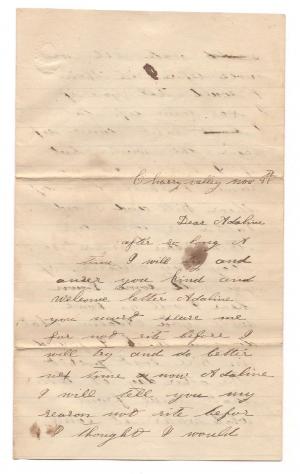 Charry valley nov
Dear Adaline
after so long A
time I will try and
anser you kind and
Welcome letter Adaline
you must excuse me
for not rite before I
will try and do better
next time so now Adaline
I will tell you my
reason not rite befor
I thought I would